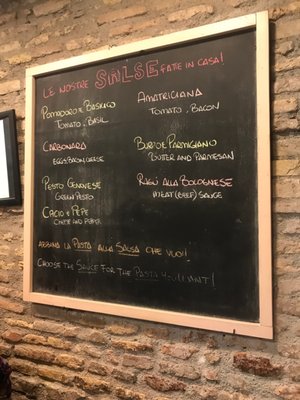 LE NOSTRE SALSE FATTE IN CASA!
POMODORO E BASILICO
TOMATO, BASIL
AMATRICIANA
TOMATO, BACON
CARBONARA
EGGS, BACON, CHEESE
BURRO E PARMIGIANO
BUTTER AND PARMESAN
PESTO GENOVESE
GREEN PESTO
RAGÙ ALLA BOLOGNESE
MEAT (BEEF) SAUCE
CACIO E PEPE
CHEESE AND PEPPER
ABBINA LA PASTA ALLA SALSA CHE VUOI!
CHOOSE THE SAUCE FOR THE PASTA YOU WANT!